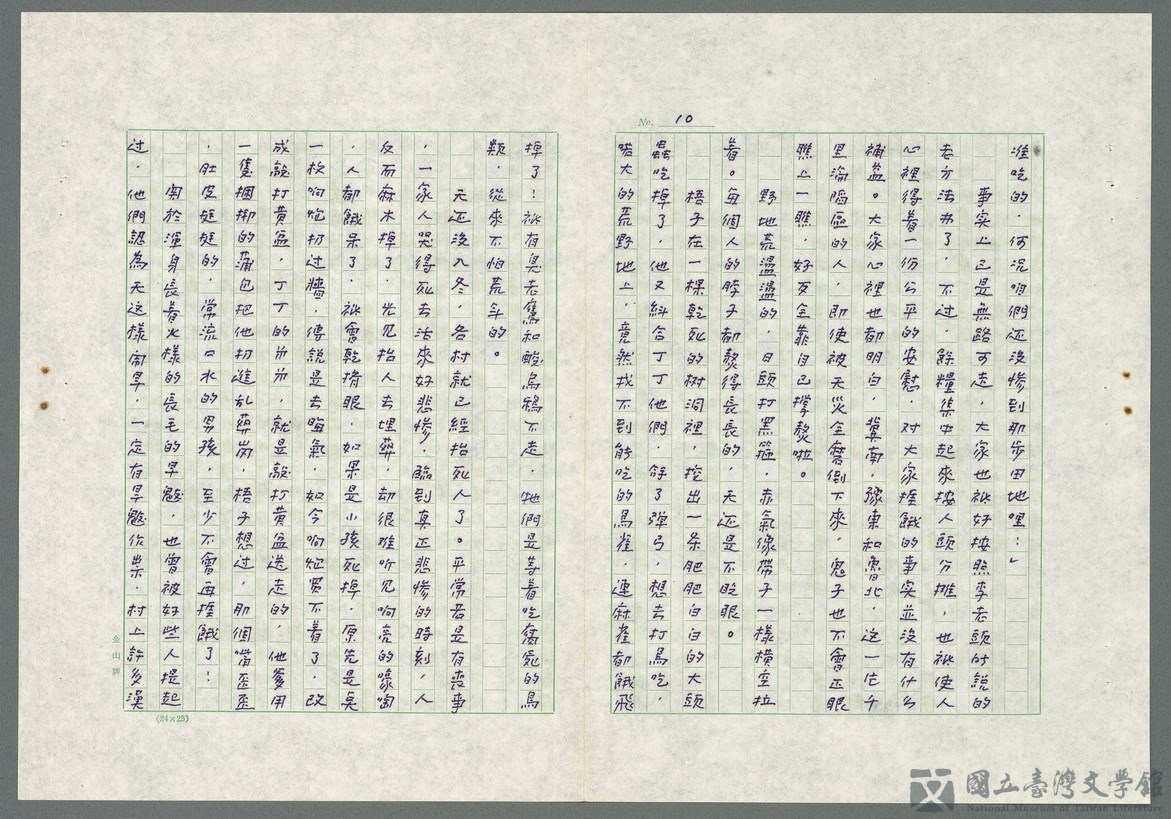 No. 10
准吃的，何况咱們还沒慘到那步田地哩！」
事实上已是無路可走，大家也祇好按照李老頭所說的
老方法办了，不过，餘糧集中起來按人頭分攤，也祇使人
心裡得着一份公平的安慰，对大家捱餓的事实並沒有什么
補益。大家心裡也都明白，冀南，豫東和魯北，这一佔千
里淪陷區的人，即使被天災全磨倒下來，鬼子也不會正眼
瞧上一瞧，好歹全靠自己撑熬啦。
野地荒盪盪的，日頭打黑箍，赤氣像帶子一樣橫空拉
着。每個人的脖子都熬得長長的，天还是不眨眼。
梧子在一棵乾死的树洞裡，挖出一条肥肥白白的大頭
蟲吃掉了，他又糾合丁丁他們，帶了彈弓，想去打鳥吃，
喏大的荒野地上，竟然找不到能吃的鳥雀，連麻雀都餓飛
掉了！祇有臭老鷹和酸烏鴉不走，牠們是等着吃腐屍的鳥
類，從來不怕荒年的。
天还沒入冬，各村就已經抬死人了。平常若是有喪事
，一家人哭得死去活來好悲慘，臨到真正悲慘的時刻，人
反而麻木掉了，光见抬人去埋葬，却很难听见响亮的嚎啕
，人都餓呆了，祇會乾擠眼，如果是小孩死掉，原先是臭
一枚响炮扔过牆，得說是去晦氣，如今响炮買不着了，改
成敲打黃盆，丁丁的弟弟，就是敲打黃盆送走的，他爹用
一隻捆綁的蒲包把他扔進乱葬崗，梧子想过，那個嘴歪歪
，肚皮挺挺的，常流口水的男孩，至少不會再捱餓了！
関於渾身長着火樣的長毛的旱魃，也曾被好些人提起
过，他們認為天这樣鬧旱，一定有旱魃作祟，村上許多漢
金山牌
(24×25)
國立臺灣文學館
National Museum of Taiwan Literature